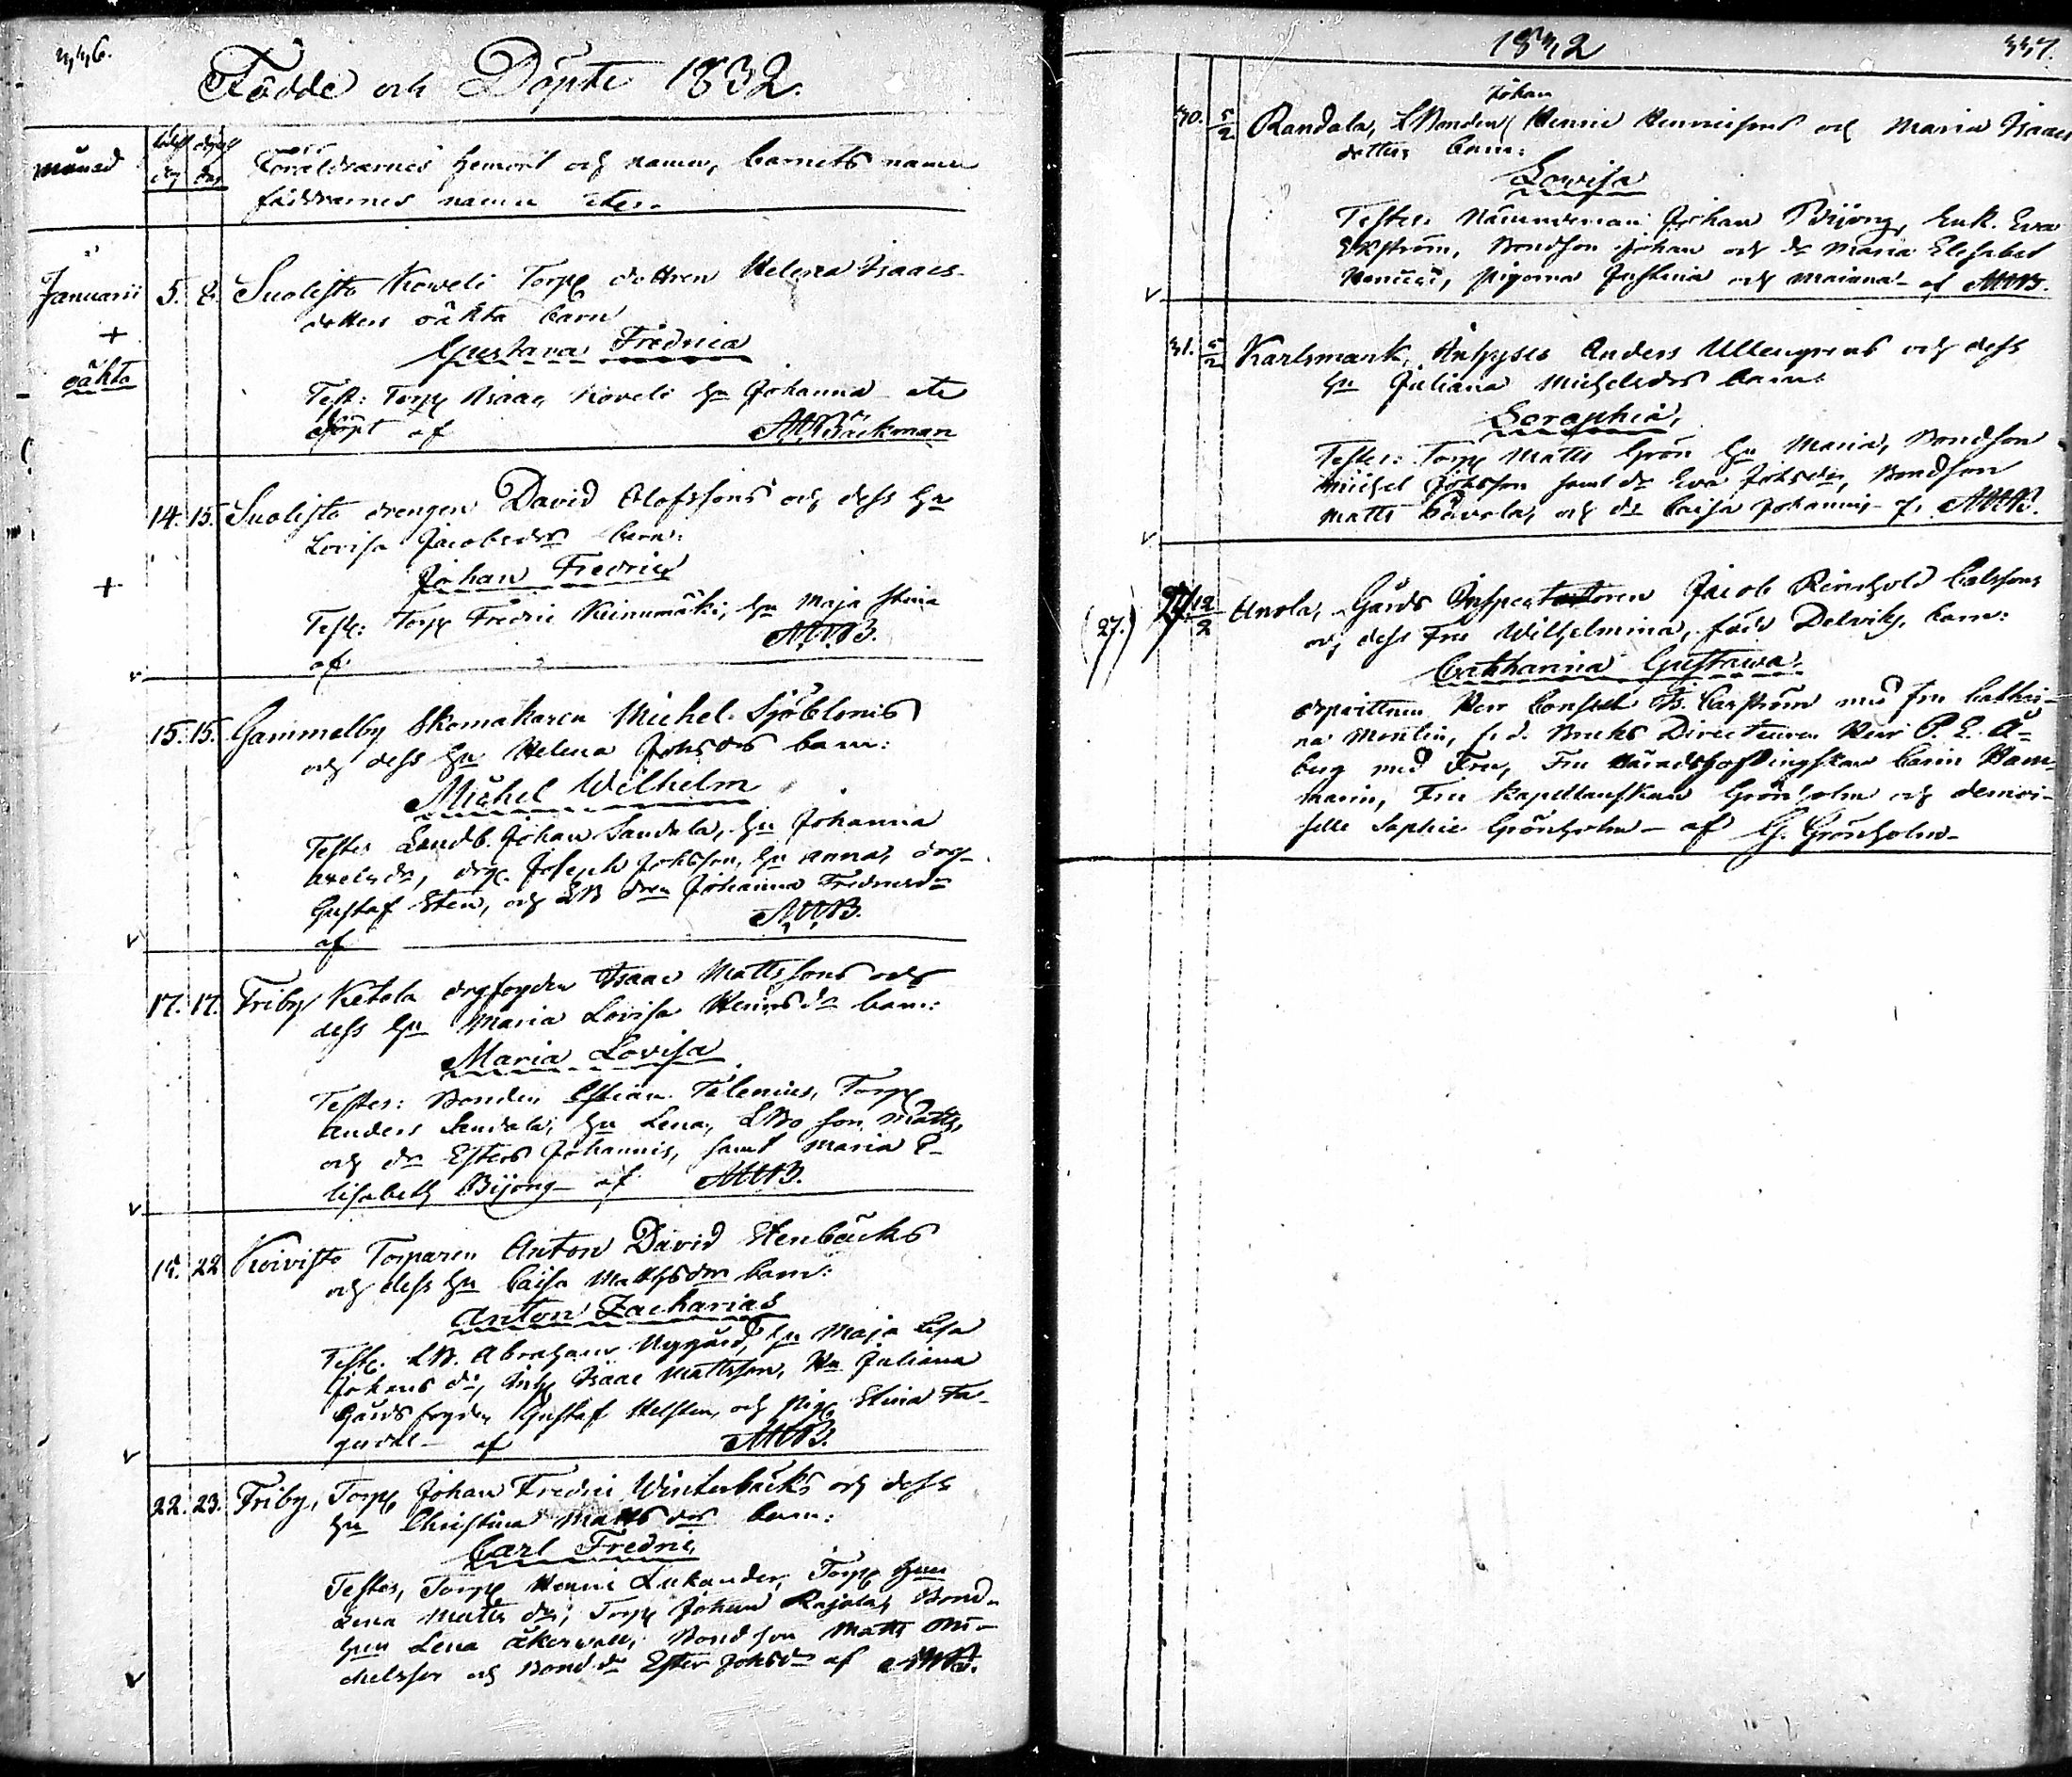 446.
Födde och Döpte 1832.
månad
född dag
döpt dag
Föräldrarnes hemort och namn, barnets namn
faddrarnes namn etc.
Januarii
5. 8. Suolisto Koveli Torp dottren Helena Isaacs-
dotters oäkta barn
+
oäkta
Gustava Fredrica
Test: Torp Isaac Koveli hu Johanna etc
döpt af AWBäckman
14. 15. Suolisto drengen David Olofssons och dess hu
Lovisa Jacobsdrs barn:
Johan Fredric
+
Test: Torp Fredric Keinumäki, hu Maja Stina
af AWB.
15. 15. Gammelby Skomakaren Michel Sjöbloms
och dess hu Helena Johsdrs barn:
Michel Wilhelm
Testes Landb. Johan Sandela, hu Johanna
Axelsdr, drg. Joseph Johsson, hu Anna, drg
Gustaf Sten, och LB drn Johanna Fredricsdr
af AWB.
17. 17. Friby Ketola drgfogden Isaac Mattssons och
dess hu Maria Lovisa Henrsdr barn:
Maria Lovisa
Testes: Bonden Christian Telenius, Torp
Anders Sandala, hu Lena, LBo son Matts,
och dr Esters Johannis, samt Maria E-
lisabeth Bijong af AWB.
15. 22 Koivisto Torparen Anton David Stenbäcks
och dess hu Caisa Mattsdrs barn:
Anton Zacharias
Test. LB. Abraham Nygård, hu Maja Lisa
Johans dr, Inh Isaac Mattsson, Hu Juliana
Gårds fogden Gustaf Helsten, och Pig. Stina Fa-
gerdal af AWB.
22. 23. Friby, Torp Johan Fredric Winterbäcks och dess
hu Christina Mattsdrs barn:
Carl Fredric
Testes, Torp Henric Lukander, Torp hun
Lena Matts dr, Torp Johan Rajala, Bond-
hun Lena Åkerwall, Bondson Matts Mi-
chelsson och Bond dr Ester Johsdr af AWB.
1832
447.
Johan
30. 5/2 Randala, LBonden Henric Henricsons och Maria Isaacs
dotters barn:
Lovisa
Testes Nämndeman Johan Bijong, Enk. Eva
Ekström, Bondson Johan och dr Maria Elisabet
, pigorna Justina och Maiana af AWB.
31. 5/2 Karlsmark, Inhyses Anders Ullengrens och dess
hu Juliana Michelsdrs barn:
Seraphia,
Testes: Torp Matts Grön hu Maria, Bondson
Michel Johsson samt dr Eva Johsdr, Bondson
Matts Pävola, och dr Caisa Johannis af AWB.
(27.) 27. 12/2 Anola, Gårds Inspectoren Jacob Reinhold Carlssons
och dess Fru Wilhelmina, född Delvik, barn:
Catharina Gustava.
Herr Consul Fr. Carström med Fru Cathari-
na Moulin, f. d. Bruks Directeuren Herr P. E. Å-
berg med Fru, Fru Häradshöfdingskan Carin Ham-
marin, Fru Kapellanskan Grönholm och demoi-
selle Sophie Grönholm af G. Grönholm